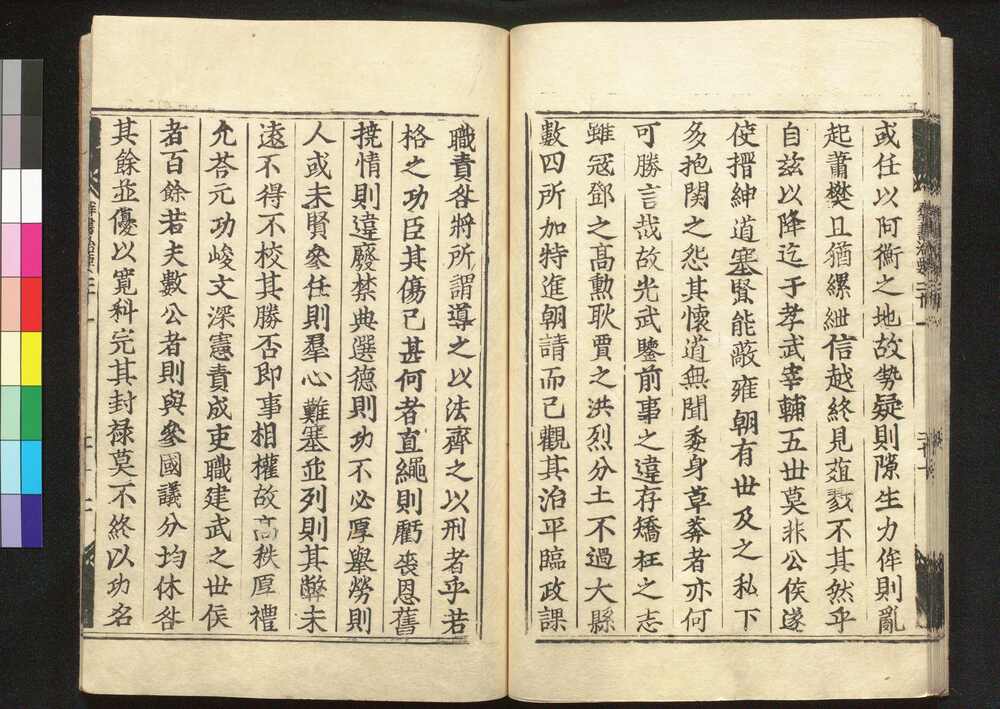 或任以阿衡之地故勢疑則隙生力侔則亂
起蕭樊且猶縲紲信越終見葅戮不其然乎
自茲以降迄于孝武宰輔五丗莫非公侯遂
使搢紳道塞賢能蔽雍朝有丗及之私下
多抱関之怨其懷道無聞委身草莽者亦何
可勝言哉故光武鑒前事之違存矯枉之志
雖冠鄧之髙勳耿賈之洪烈分土不過大縣
數四所加特進朝請而已觀其治平臨政課
職責咎將所謂導之以法齊之以刑者乎若
格之功臣其傷已甚何者直繩則虧丧恩舊
撓情則違廢禁典選德則功不必厚舉勞則
人或未賢參任則羣心難塞並列則其弊未
遠不得不校其勝否即事相權故髙秩厚禮
允荅元功峻文深憲責成吏職建武之世侯
者百餘若夫數公者則與參國議分均休咎
其餘並優以寬科完其封禄莫不終以功名